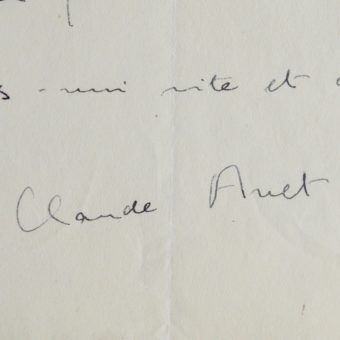 - moi vite et
Claude Anet